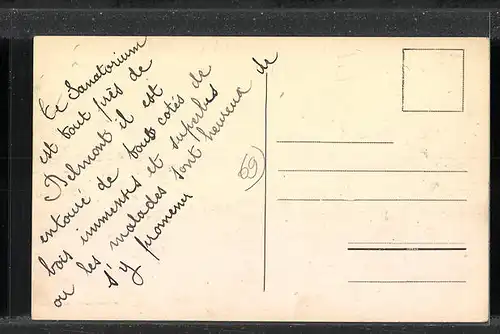 Ce Sanatorium
est tout près de
Belmont il est
entouré de tout cotés de
bois immenses et superbes
ou les malades sont heureux de
s'y promener
69